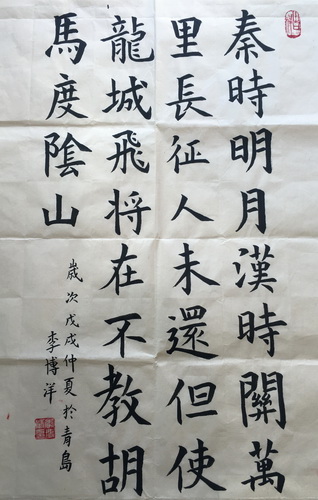 秦時明月漢時關萬
里長征人未還但使
龍城飛将在不教胡
馬度陰山
歲次戊戌仲夏於青島
李博洋